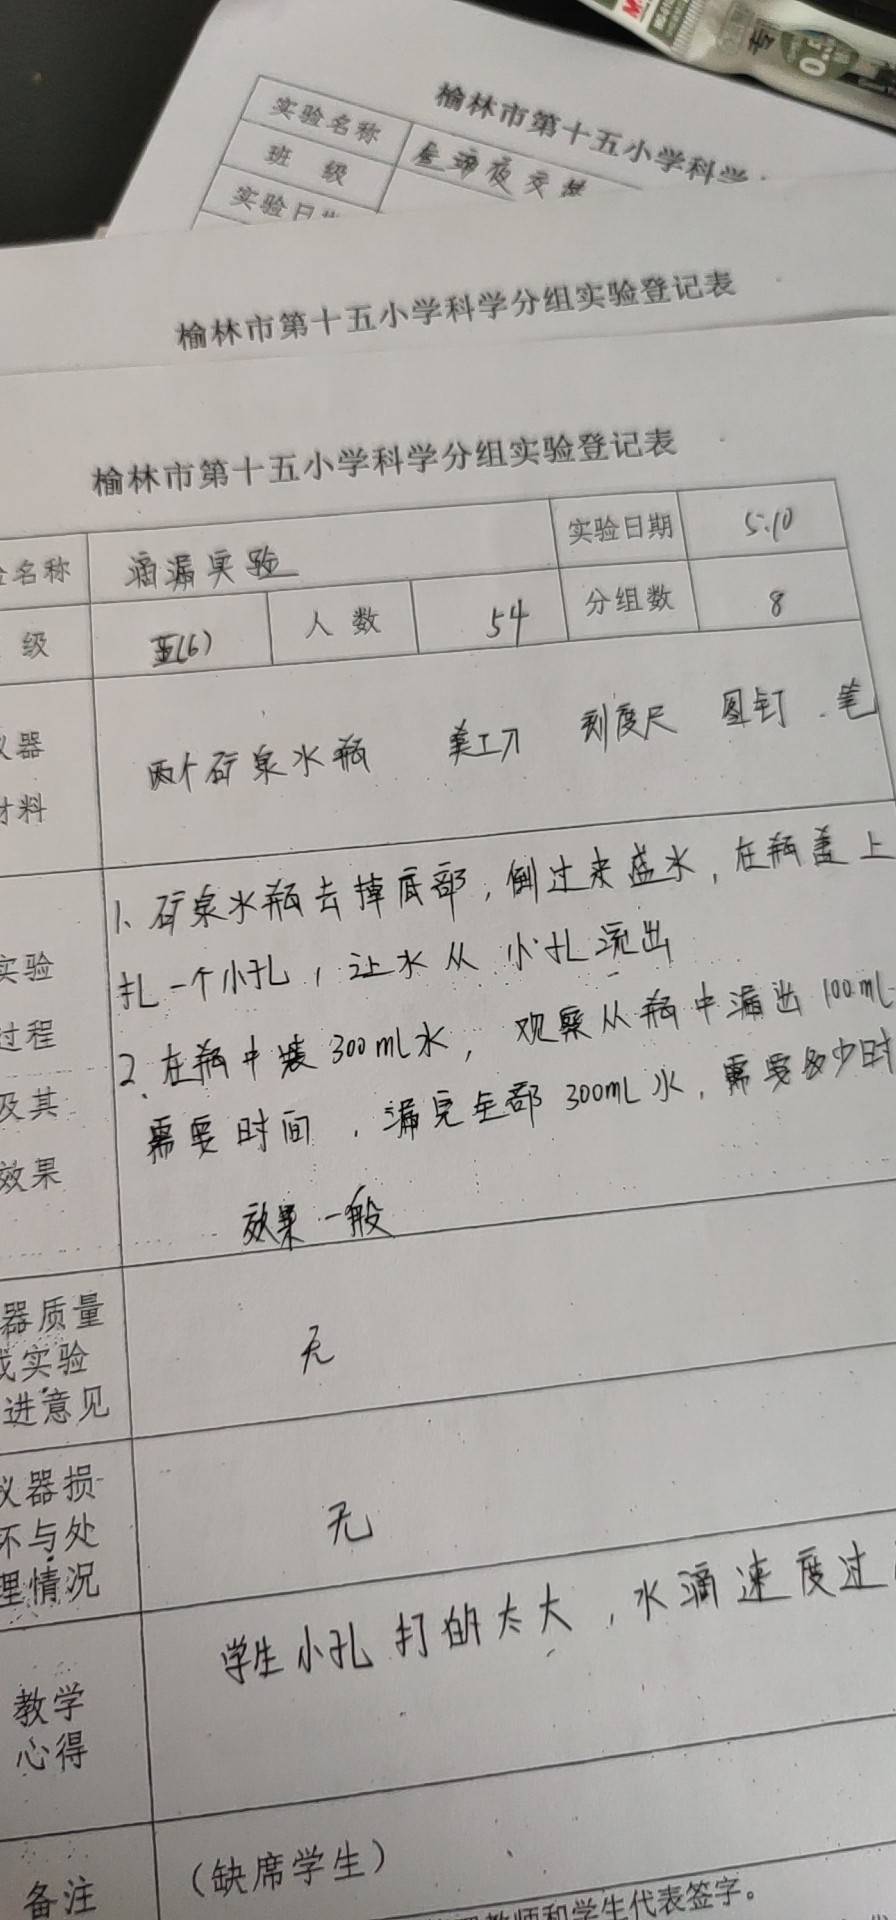 0.5
榆林市第十五小学科学
实验名称
班 级
实验日
榆林市第十五小学科学分组实验登记表
榆林市第十五小学科学分组实验登记表
名称 滴漏实验 实验日期 5.10
级 五(6) 人数 54 分组数 8
仪器
材料
两个矿泉水瓶 美工刀 刻度尺 图钉.笔
实验
过程
及其
效果
1、矿泉水瓶去掉底部,倒过来盛水,在瓶盖上
扎一个小孔,让水从小孔流出
2、在瓶中装300ml水,观察从瓶中漏出100ml
需要时间,漏完全部300mL水,需要多少时
效果一般
器质量
或实验
进意见
无
仪器损
坏与处
理情况
无
教学
心得
学生小孔打的太大,水滴速度过
备注 (缺席学生)
教师和学生代表签字。